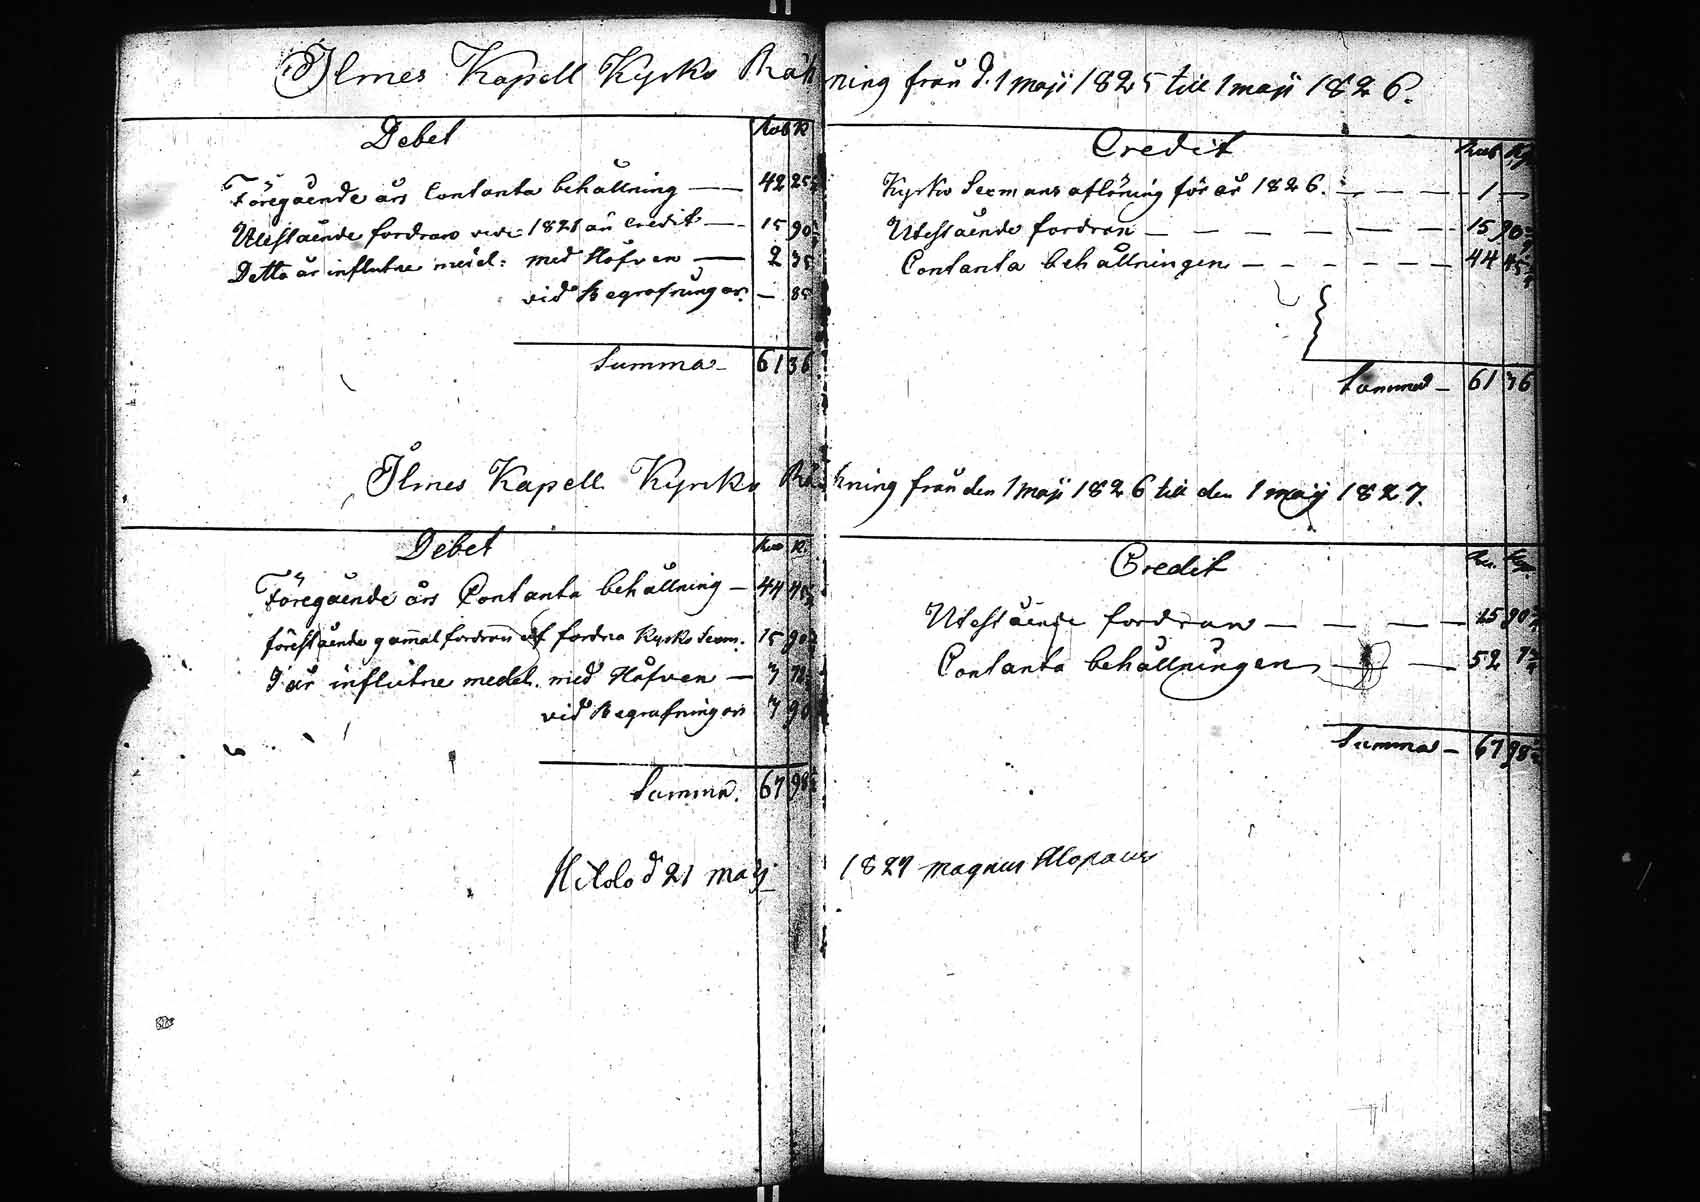 Ilmes Kapell Kyrko Räkning från d. 1 Maji 1825 till 1 maji 1826.
Debet
Rub K
Föregående års Contanta behållning — 42 25
Utestående fordran vide 1821 års Credit — 15 90
Detta år influtne medel: med Håfven — 2 35
vid Begrafningar. — 85
Summa — 61 36
Credit
Rub Kop
Kyrko Sexmans aflöning för år 1826. — 1 —
Utestående fordran — 15 90
Contanta behållningen — 44 45
Summa — 61 36
Ilmes Kapell Kyrko Räkning från den 1 Maji 1826 till den 1 maij 1827.
Debet
Rub K.
Föregående års Contanta behållning — 44 45
förestående gammal fordran af fordna Kyrko Sexm. 15 90
I år influtne medel. med Håfven — 3
vid Begrafningar 3 90
Summa. 67 98
Credit
Ru. Kop.
Utestående fordran — 15 90
Contanta behållningen — 52 7
Summa — 67 98
Hitolo d 21 maij 1827 Magnus Alopaeus